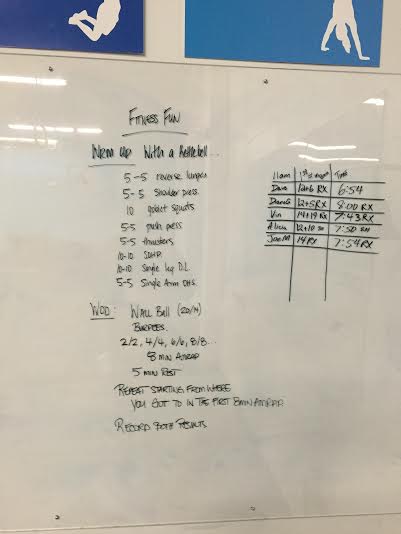 Fitness Fun
Warm Up With a Kettlebell...
5-5 reverse lunges
5-5 Shoulder press
10 goblet squats
5-5 push press
5-5 thrusters
10-10 SDHP
10-10 Single leg D.L.
5-5 Single Arm OHS.
WOD: Wall Ball (20/14)
Burpees
2/2, 4/4, 6/6, 8/8...
8 min AMRAP
5 min Rest
Repeat starting from where
you got to in the first 8min AMRAP
Record both results
11am 1st 8 Time
Dave RX 6:54
12+5RX 8:00 RX
Vin 14+19 RX 7:43 RX
Alicia 12+10 7:50
14 RX 7:54 RX